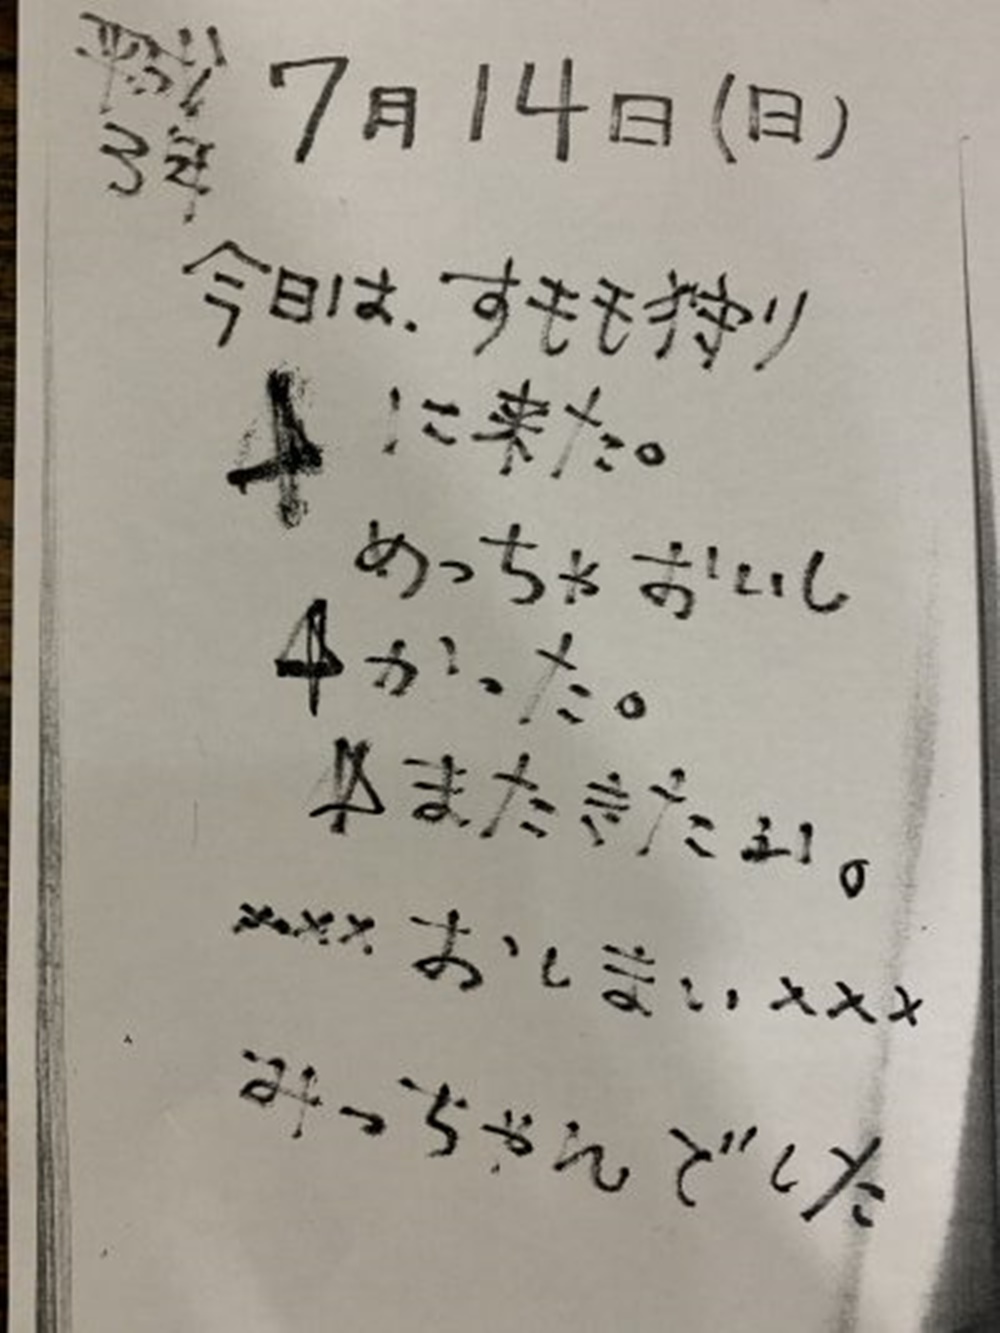 平成
3年
7月14日(日)
今日は、すもも狩り
に来た。
めっちゃおいし
かった。
またきたい。
××××おしまい×××
みっちゃんでした